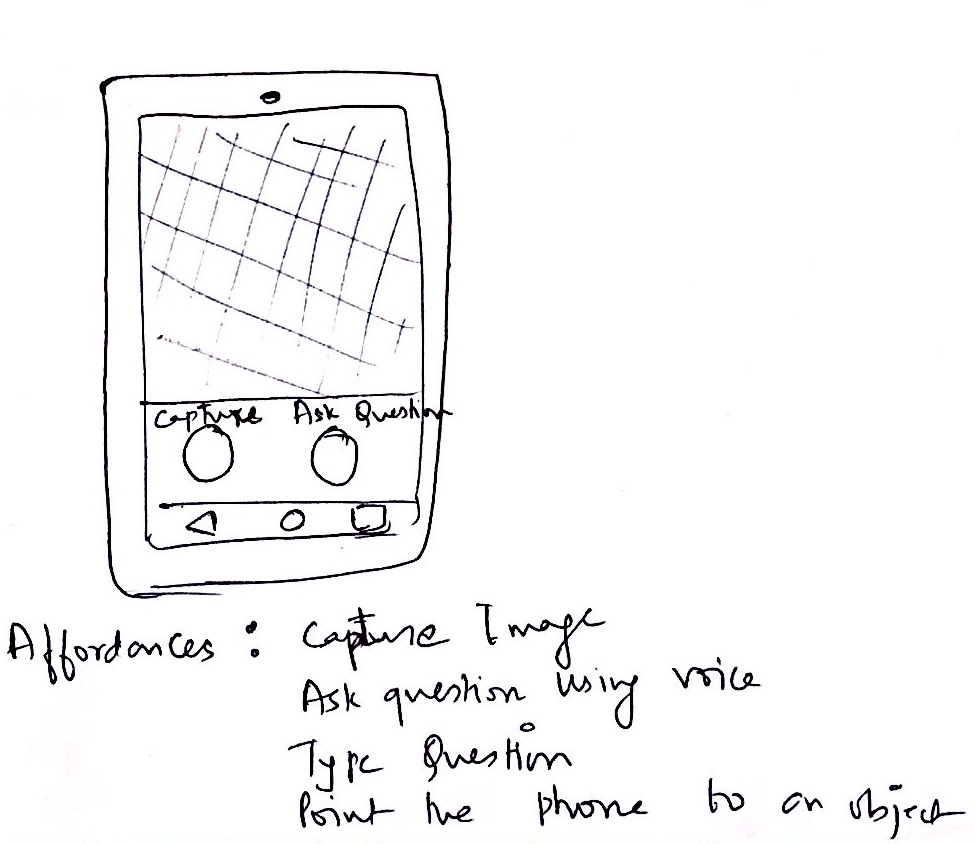 Capture Ask Question
Affordances : Capture Image
Ask question using voice
Type Question
Point the phone to an object